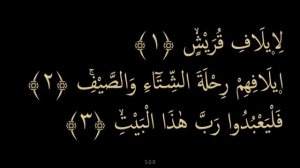 لِاِيلَافِ قُرَيْشٍۙ ﴿١﴾
اٖيلَافِهِمْ رِحْلَةَ الشِّتَٓاءِ وَالصَّيْفِۚ ﴿٢﴾
فَلْيَعْبُدُوا رَبَّ هٰذَا الْبَيْتِۙ ﴿٣﴾
1-2-3